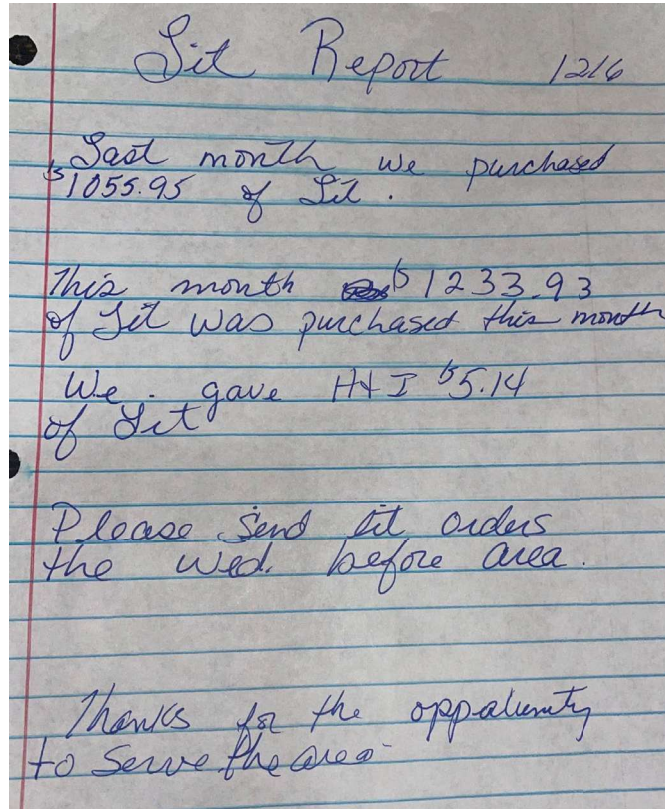 Lit Report 12/6
Last month we purchased
$1055.95 of Lit.
This month $1233.93
of Lit was purchased this month
We gave H&I $5.14
of Lit
Please send lit orders
the wed. before area.
Thanks for the oppatunity
to serve the area